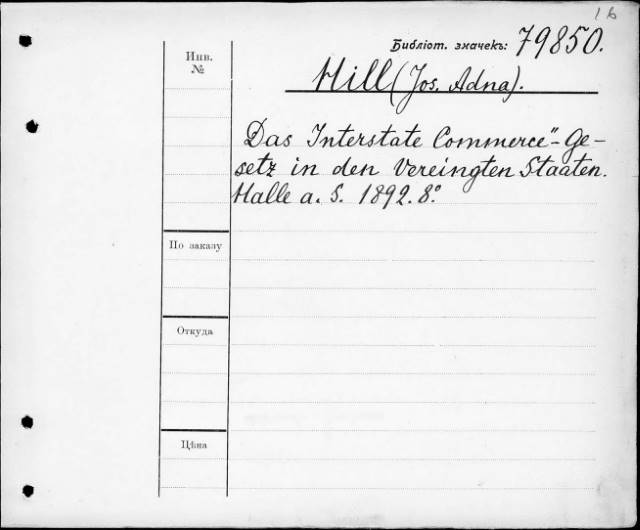 16
Библіот. значекъ: 79850.
Инв.
№
Hill (Jos. Adna).
Das Interstate Commerce"-Ge-
setz in den Vereingten Staaten.
Halle a. S. 1892. 8°.
По заказу
Откуда
Цѣна